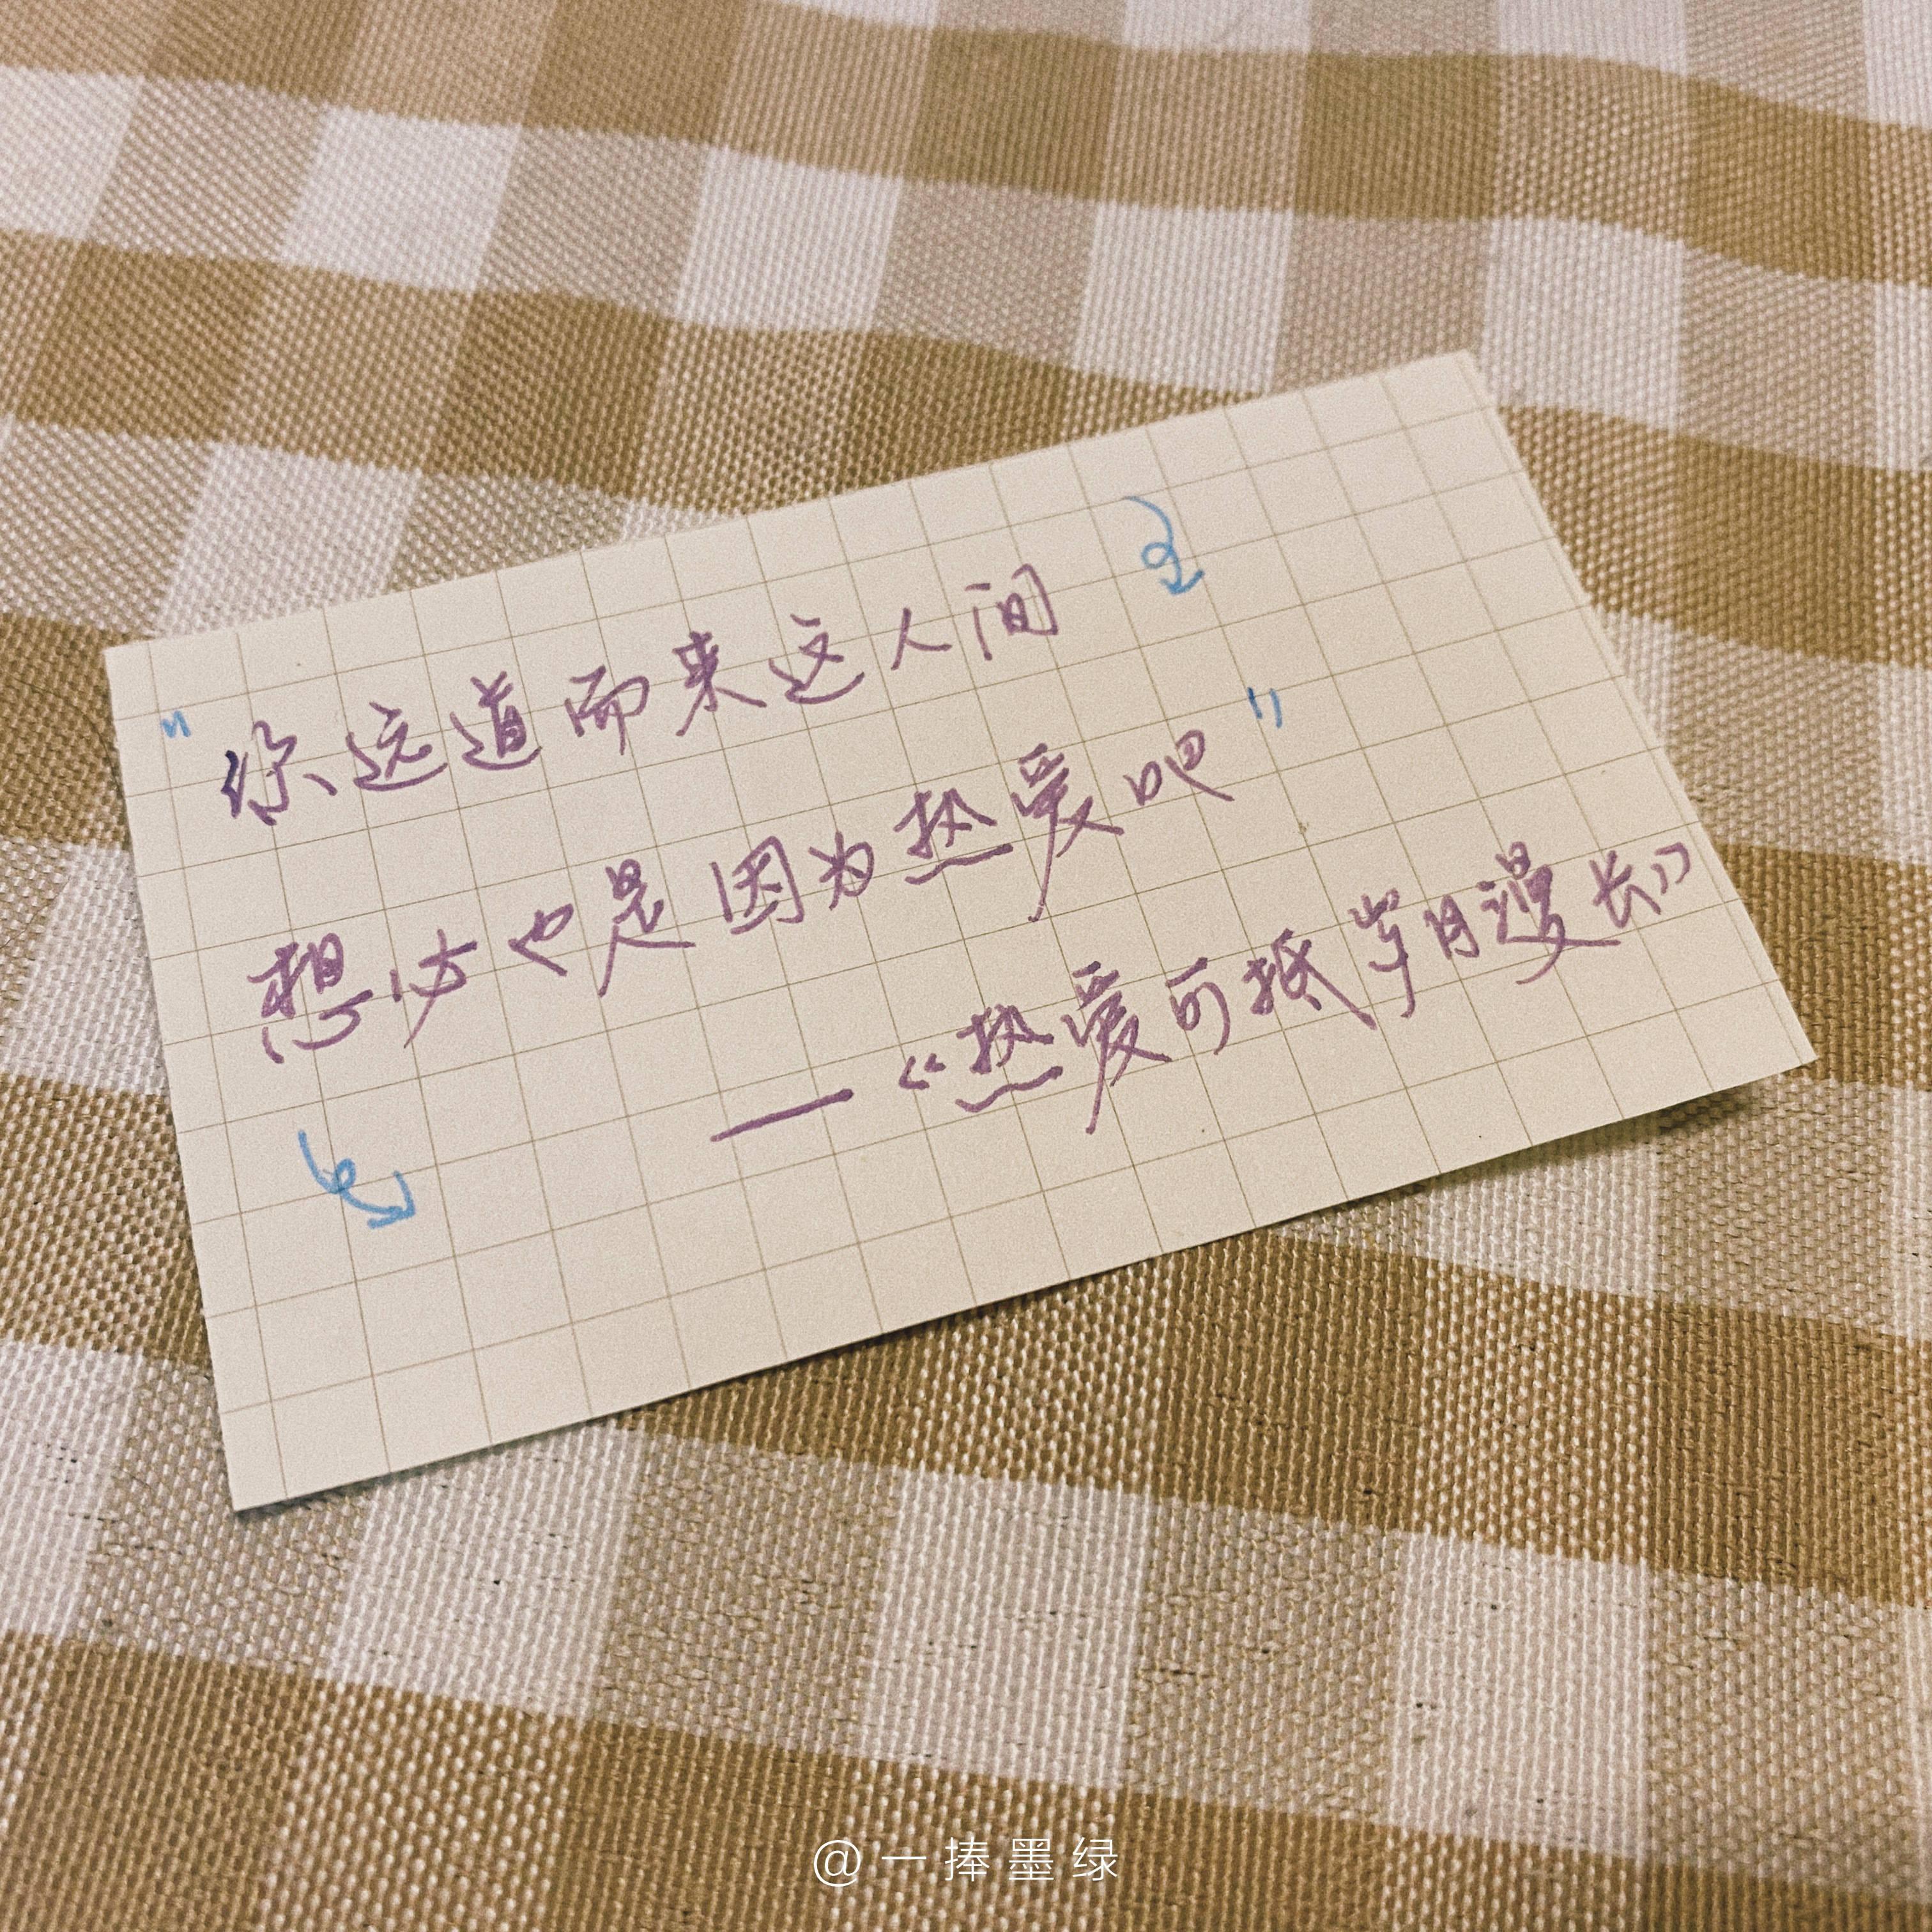 “你远道而来这人间
想必也是因为热爱吧”
——《热爱可抵岁月漫长》
@一捧墨绿